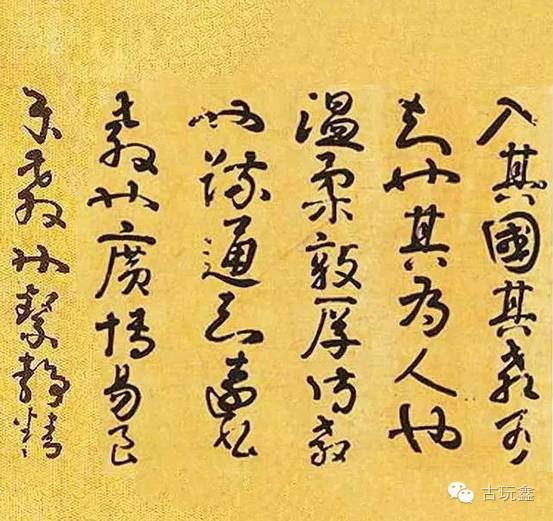 入其國其教可
知也其為人也
溫柔敦厚詩教
也疏通知遠書
教也廣博易良
樂教也絜靜精
古玩鑫